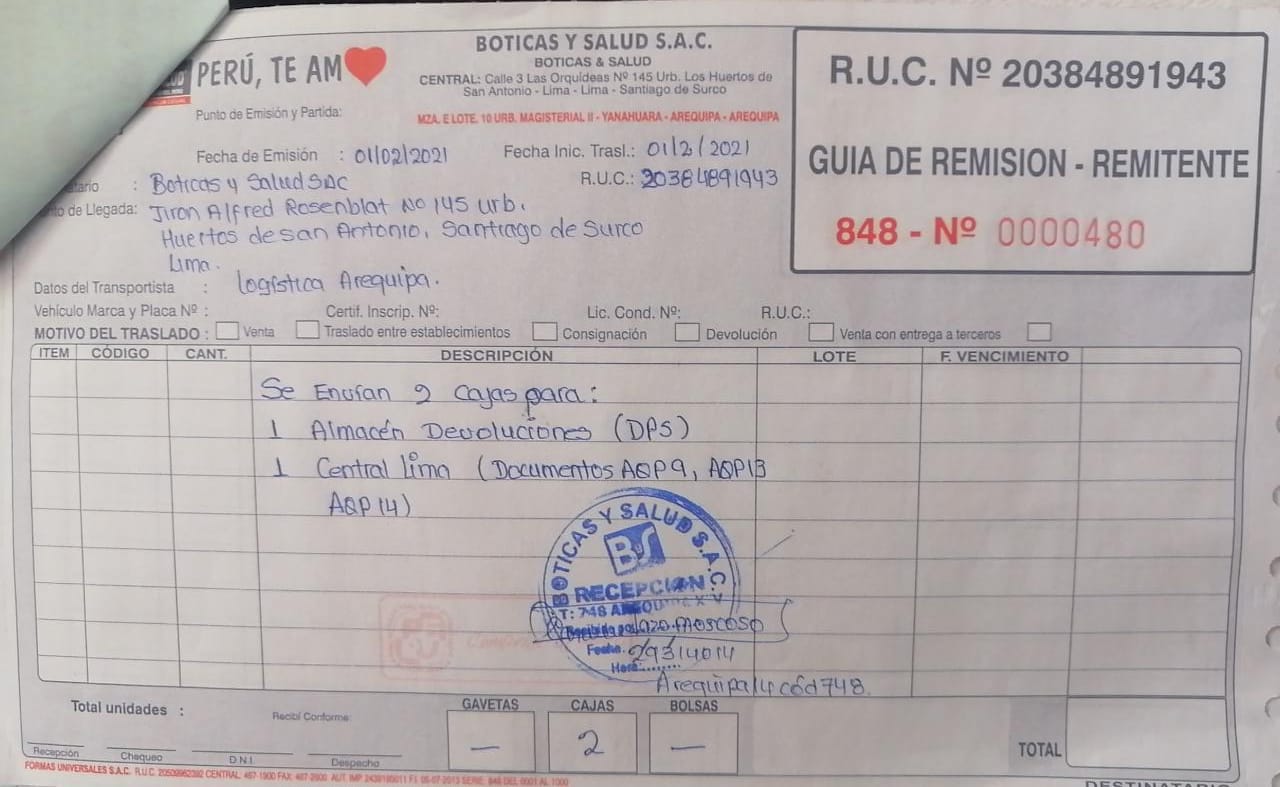 PERÚ, TE AM
BOTICAS Y SALUD S.A.C.
BOTICAS & SALUD
CENTRAL: Calle 3 Las Orquideas Nº 145 Urb. Los Huertos de
San Antonio - Lima - Lima - Santiago de Surco
Punto de Emisión y Partida:
MZA. E LOTE. 10 URB. MAGISTERIAL II - YANAHUARA - AREQUIPA - AREQUIPA
R.U.C. Nº 20384891943
GUIA DE REMISION - REMITENTE
848 - Nº 0000480
Fecha de Emisión : 01/02/2021 Fecha Inic. Trasl.: 01/2/2021
: Boticas y Salud SAC R.U.C.: 20384891943
de Llegada: Jiron Alfred Rosenblat No 145 urb.
Huertos de san Antonio, Santiago de Surco
Lima.
Datos del Transportista : Logística Arequipa.
Vehículo Marca y Placa Nº : Certif. Inscrip. Nº: Lic. Cond. Nº: R.U.C.:
MOTIVO DEL TRASLADO : Venta Traslado entre establecimientos Consignación Devolución Venta con entrega a terceros
ITEM CÓDIGO CANT. DESCRIPCIÓN LOTE F. VENCIMIENTO
Se Envían 2 Cajas para:
1 Almacén Devoluciones (DPS)
1 Central Lima (Documentos AQP9, AQP13
AQP14)
BOTICAS Y SALUD S.A.C.
BS
RECEPCION
T: 748
Recibido por
Moscoso
Fecha. 29314014
Hora:........
Arequipa 14 cód 748.
Total unidades : Recibí Conforme: GAVETAS CAJAS BOLSAS
— 2 — TOTAL
Recepción Chequeo D.N.I. Despacho
FORMAS UNIVERSALES S.A.C. R.U.C. CENTRAL: 467-1900 FAX: SERIE: 848 DEL 0001 AL 1000